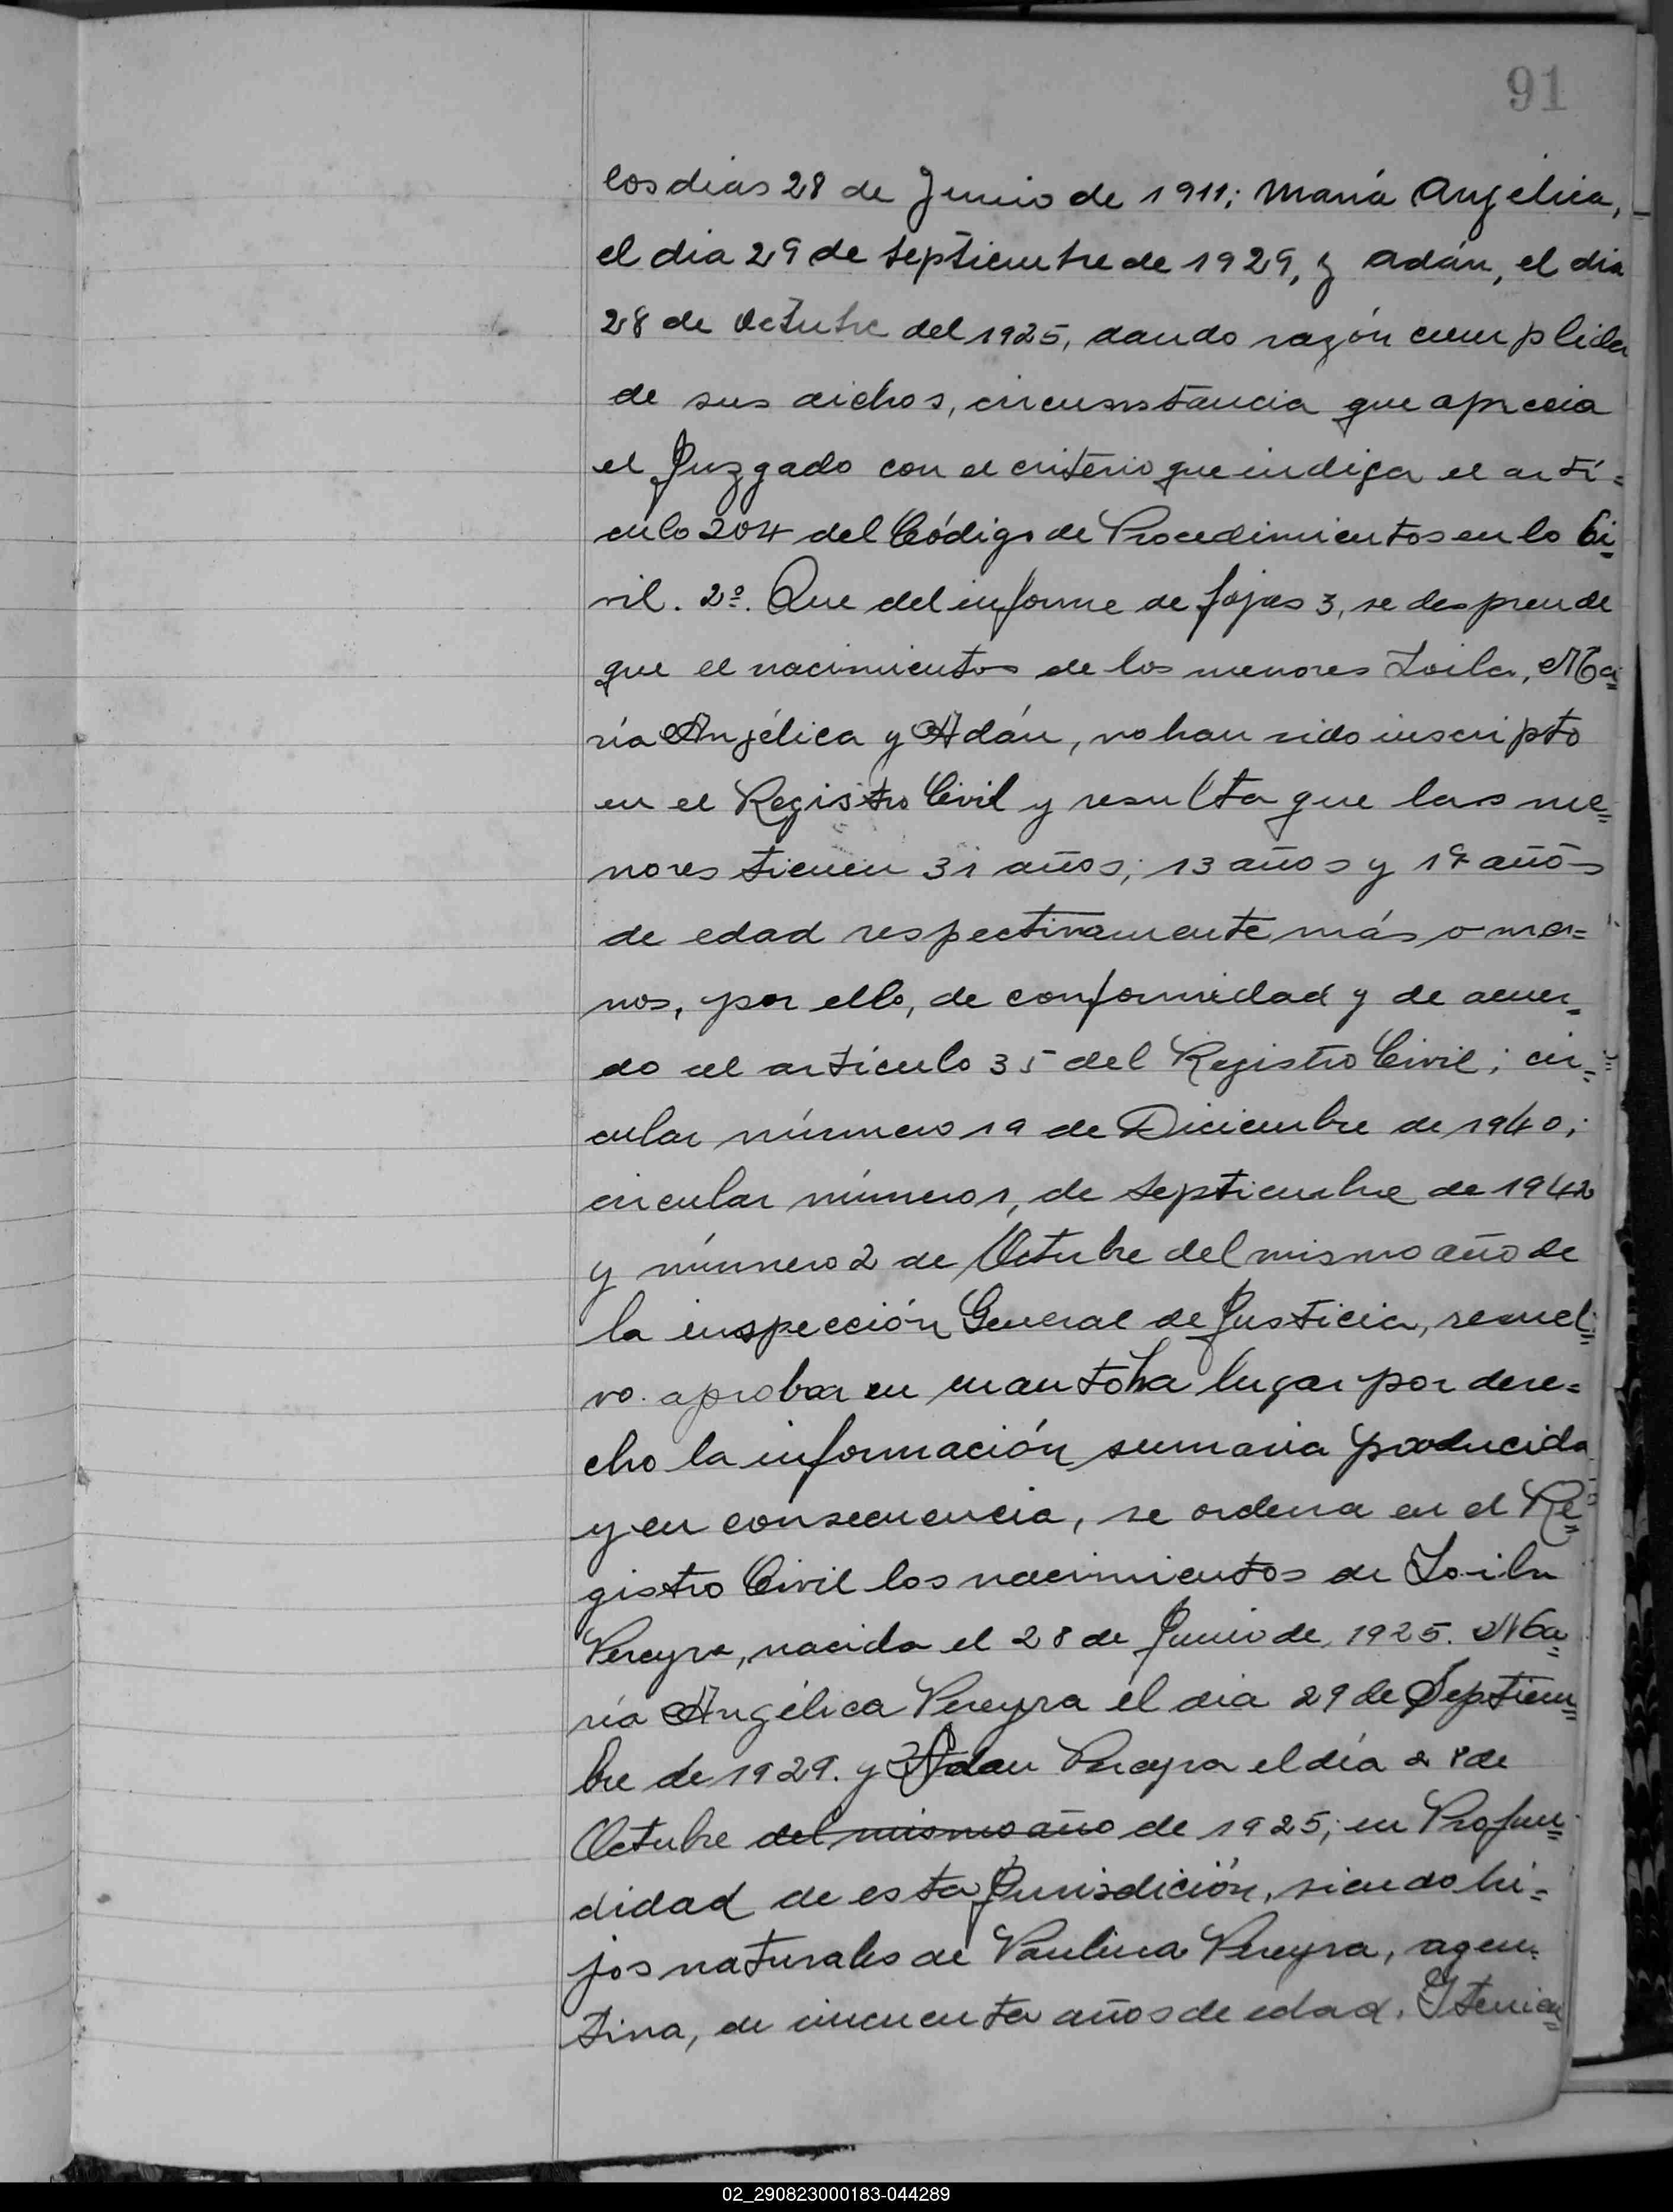 91
los dias 28 de Junio de 1911; María Angélica,
el dia 29 de septiembre de 1929, y Adán, el dia
28 de Octubre del 1925, dando razón cumplida
de sus dichos, circunstancia que aprecia
el Juzgado con el criterio que indica el artí=
culo 204 del Código de Procedimientos en lo Ci=
vil. 2º. Que del informe de fojas 3, se desprende
que el nacimientos de los menores Zoila, Ma=
ría Angélica y Adán, no han sido inscripto
en el Registro Civil y resulta que las me=
nores tienen 31 años; 13 años y 17 años
de edad respectivamente más o me=
nos, por ello, de conformidad y de acuer=
do al artículo 35 del Registro Civil; cir=
cular número 19 de Diciembre de 1940;
circular número 1, de septiembre de 1942
y número 2 de Octubre del mismo año de
la inspección General de Justicia, resuel=
vo. aprobar en cuanto ha lugar por dere=
cho la información sumaria producida
y en consecuencia, se ordena en el Re=
gistro Civil los nacimientos de Zoila
Pereyra, nacida el 28 de Junio de, 1925. Ma=
ría Angélica Pereyra el dia 29 de Septiem=
bre de 1929. y Adan Pereyra el día 28 de
Octubre del mismo año de 1925; en Profun=
didad de esta Jurisdición, siendo hi=
jos naturales de Paulina Pereyra, agen=
tina, de cincuenta años de edad. Y tenien=
02_290823000183-044289